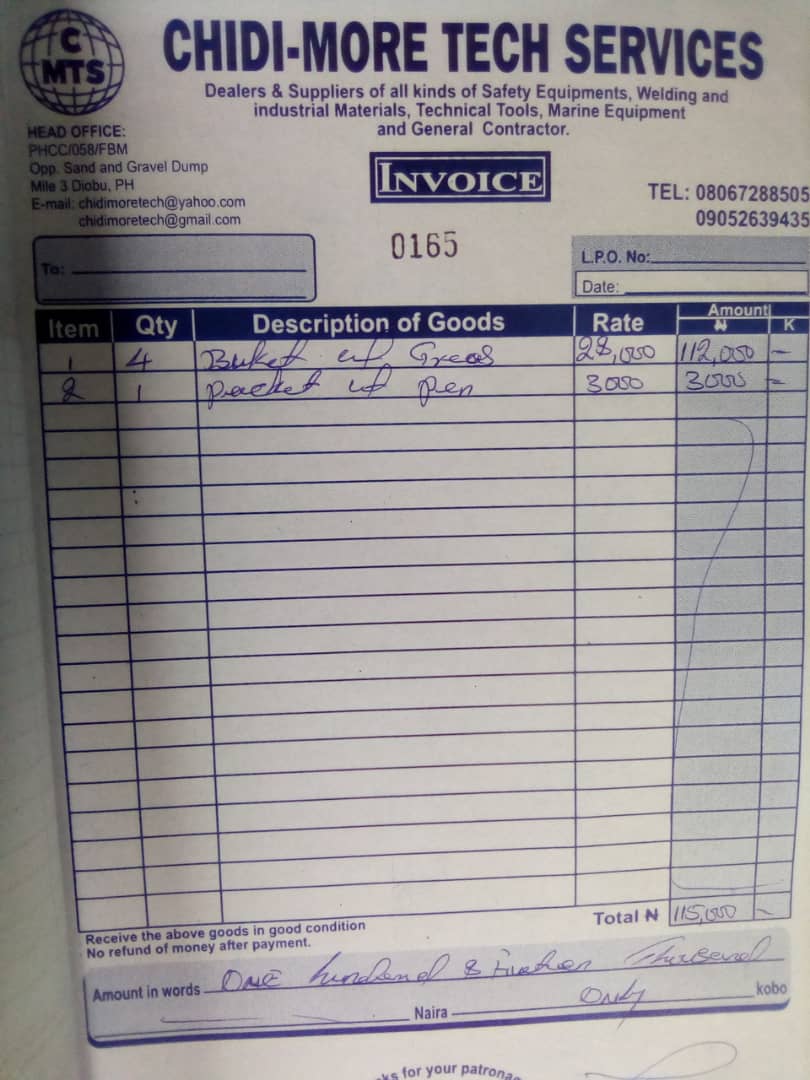 C
MTS
CHIDI-MORE TECH SERVICES
Dealers & Suppliers of all kinds of Safety Equipments, Welding and
industrial Materials, Technical Tools, Marine Equipment
and General Contractor.
HEAD OFFICE:
PHCC/058/FBM
Opp. Sand and Gravel Dump
Mile 3 Diobu, PH
E-mail: chidimoretech@yahoo.com
chidimoretech@gmail.com
INVOICE
TEL: 08067288505
09052639435
0165
To:
L.P.O. No:
Date:
Item Qty Description of Goods Rate Amount ₦ K
1 4 Buket of Greas 28,000 112,000 -
2 1 packet of pen 3000 3000 -
Total ₦ 115,000 -
Receive the above goods in good condition
No refund of money after payment.
Amount in words One hundred & Fifteen Thousand
Only kobo
Naira
for your patrona